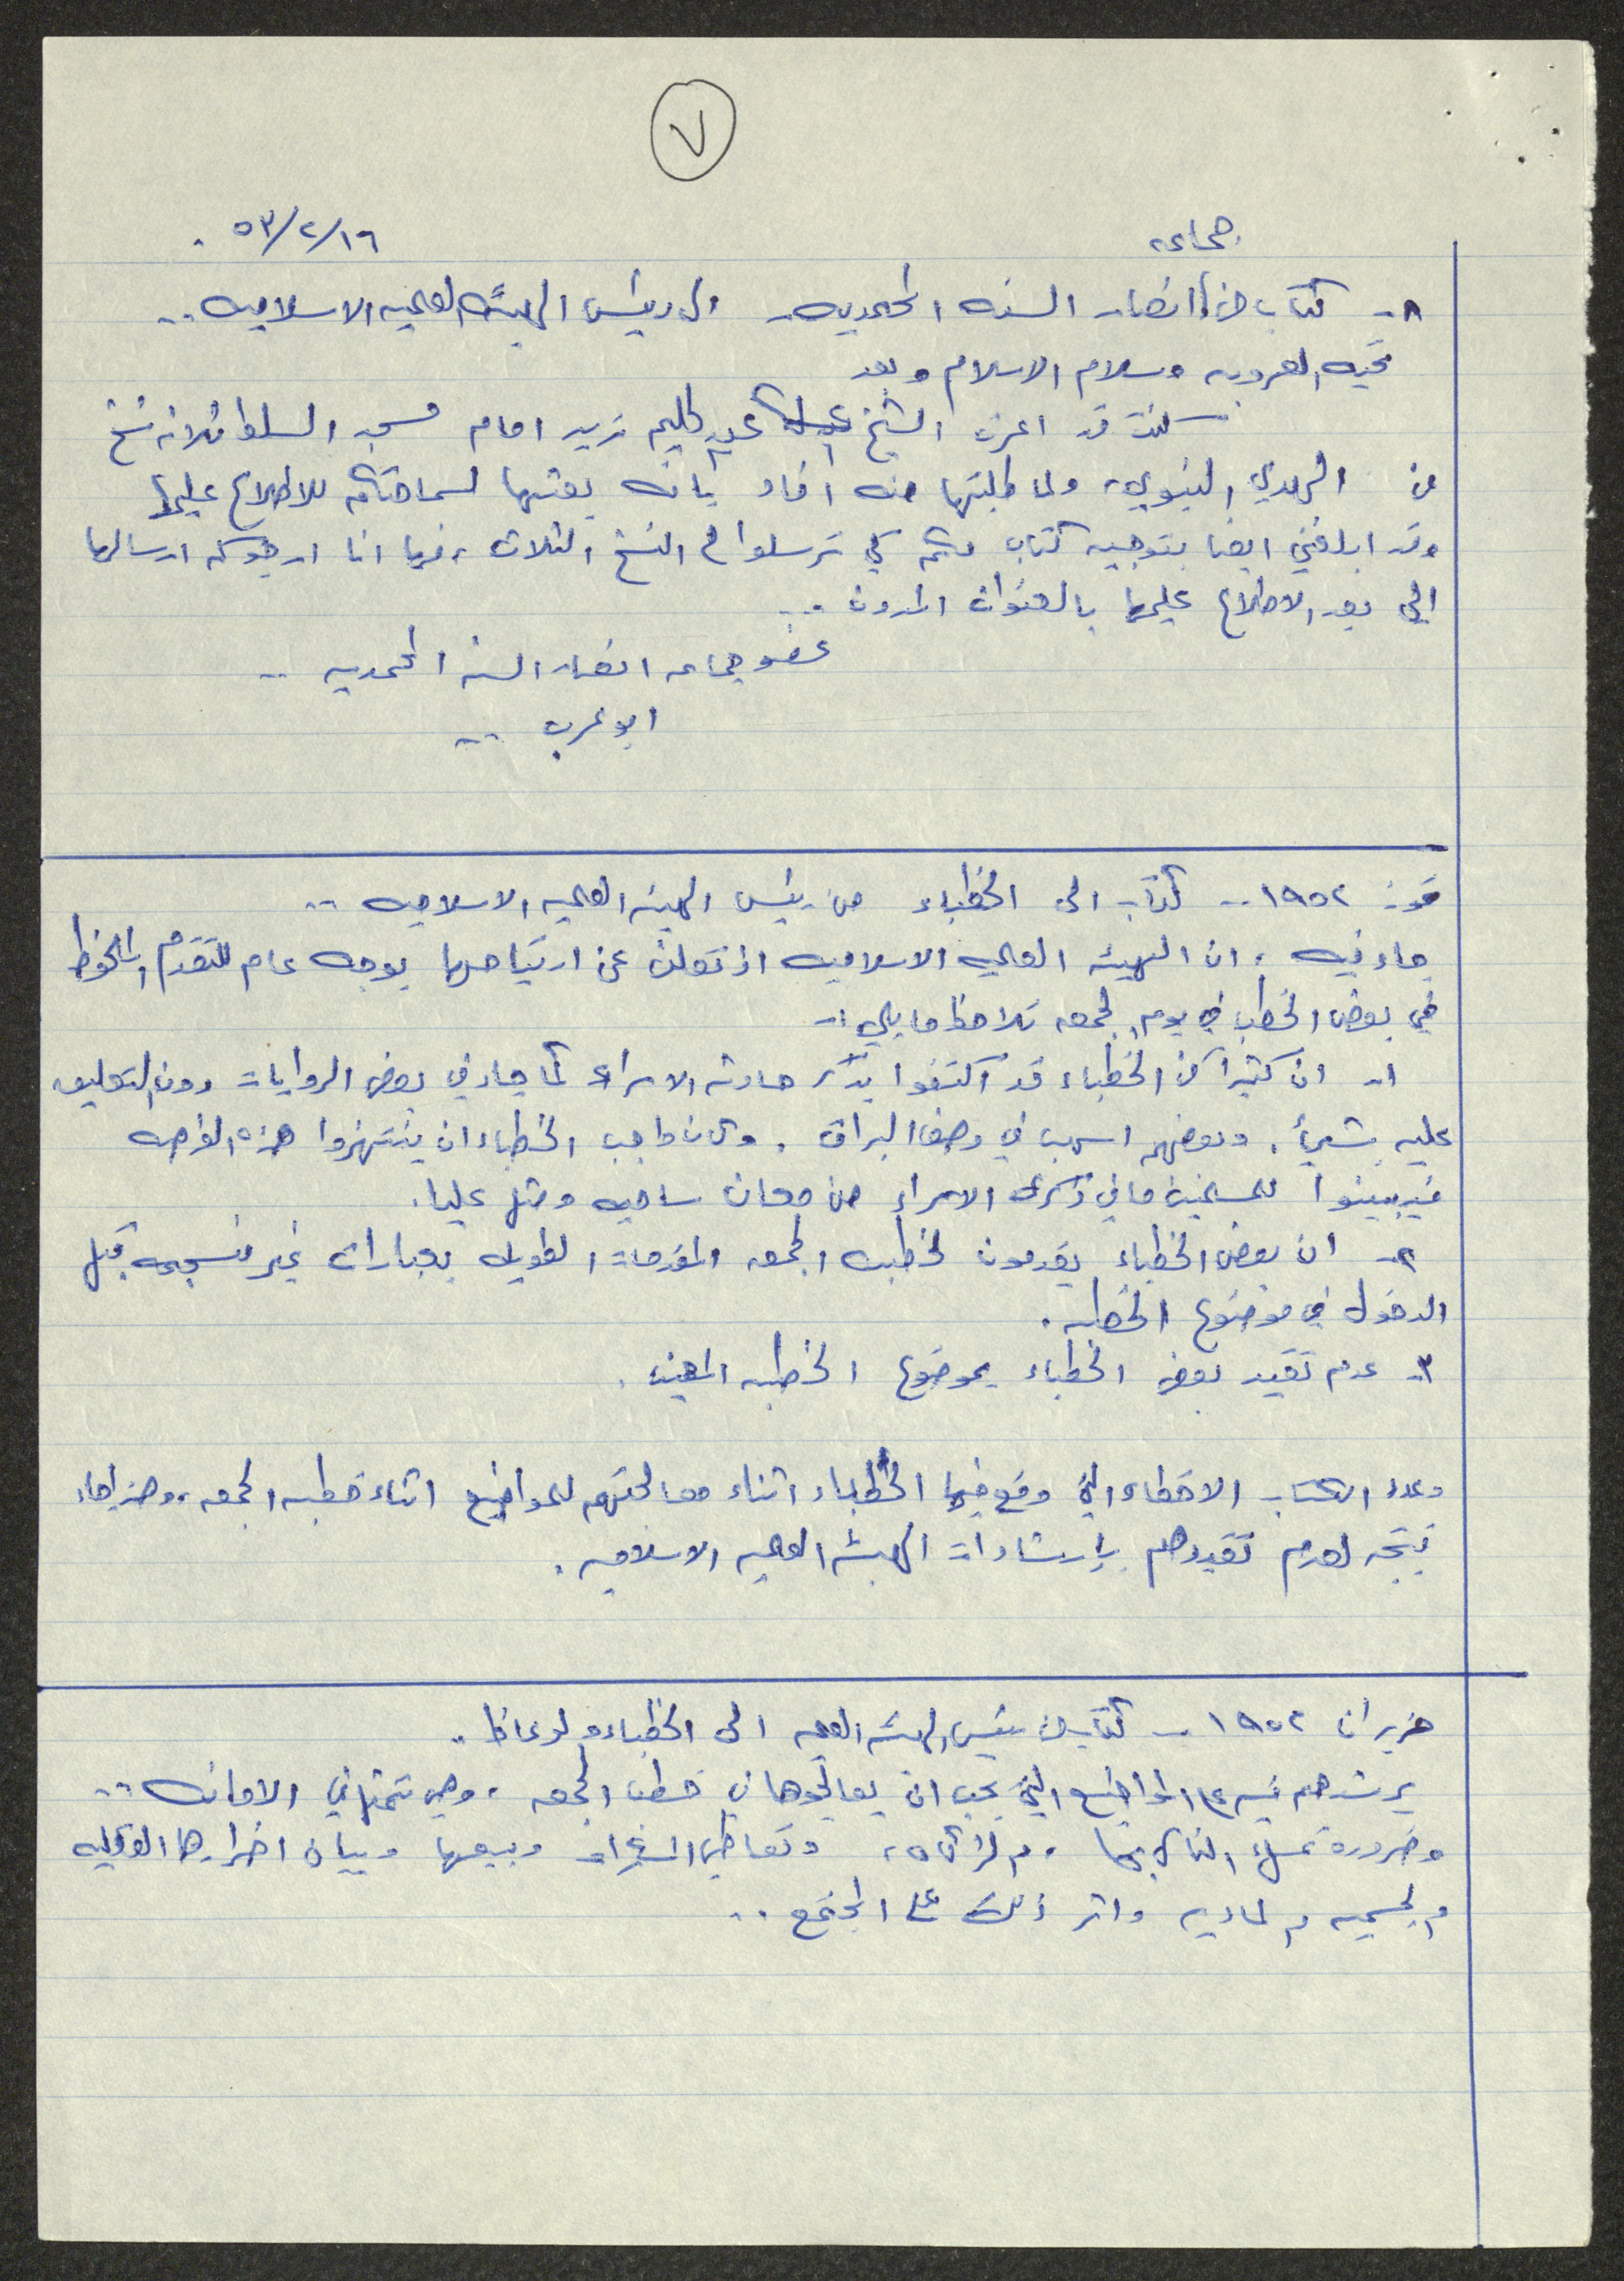 ٧
٥٣/٢/١٦ .
جماعه
٨- كتاب من انصار السنه المحمديه - الى رئيس الهيئه العلميه الاسلاميه ..
تحيه العروبه وسلام الاسلام وبعد
كنت قد اعرت الشيخ عبد الحليم زيد امام مسجد السلط ثلاثه نسخ
من الهدي النبوي، ولما طلبتها منه افاد بانه بعثها لسماحتكم للاطلاع عليها
وقد ابلغني ايضا بتوجيه كتاب لكم كي ترسلوا النسخ الثلاث ، فها انا ارجوكم ارسالها
الي بعد الاطلاع عليها بالعنوان المدون ..
عضو جماعه انصار السنه المحمديه ..
ابو عرب ..
تموز ١٩٥٢ .. كتاب الى الخطباء من رئيس الهيئه العلميه الاسلاميه ..
جاء فيه ، ان الهيئه العلميه الاسلاميه اذ تعلن عن ارتياحها بوجه عام للتقدم الملحوظ
في بعض الخطب في يوم الجمعه تلاحظ ما يلي :-
١- ان كثيرا من الخطباء قد اكتفوا بذكر حادثه الاسراء كما جاء في بعض الروايات دون التعليق
عليه بشيئ . وبعضهم اسهب في وصف البراق . وكان واجب الخطباء ان ينتهزوا هذه الفرصه
فيبينوا للمسلمين ما في ذكرى الاسراء من معان ساميه ومثل عليا .
٢- ان بعض الخطباء يقدمون لخطبة الجمعه المقدمات الطويله بعبارات غير منسجمه قبل
الدخول في موضوع الخطبه .
٣- عدم تقيد بعض الخطباء بموضوع الخطبه المعين .
وعدد الكتاب الاخطاء التي وقع فيها الخطباء اثناء معالجتهم للمواضيع اثناء خطبه الجمعه ، وهذا جاء
نتيجه لعدم تقيدهم بارشادات الهيئه العلميه الاسلاميه .
حزيران ١٩٥٢ - كتاب من رئيس الهيئه العلميه الى الخطباء والوعاظ .
يرشدهم فيه على المواضيع التي يجب ان يعالجوها في خطب الجمعه ، وهي تتمثل في الامانه ..
وضرورة تمسك الناس بها ، والزكاة ، وتعاطي المخدرات وبيعها وبيان اضرارها العقليه
والجسميه والماديه واثر ذلك على المجتمع ..